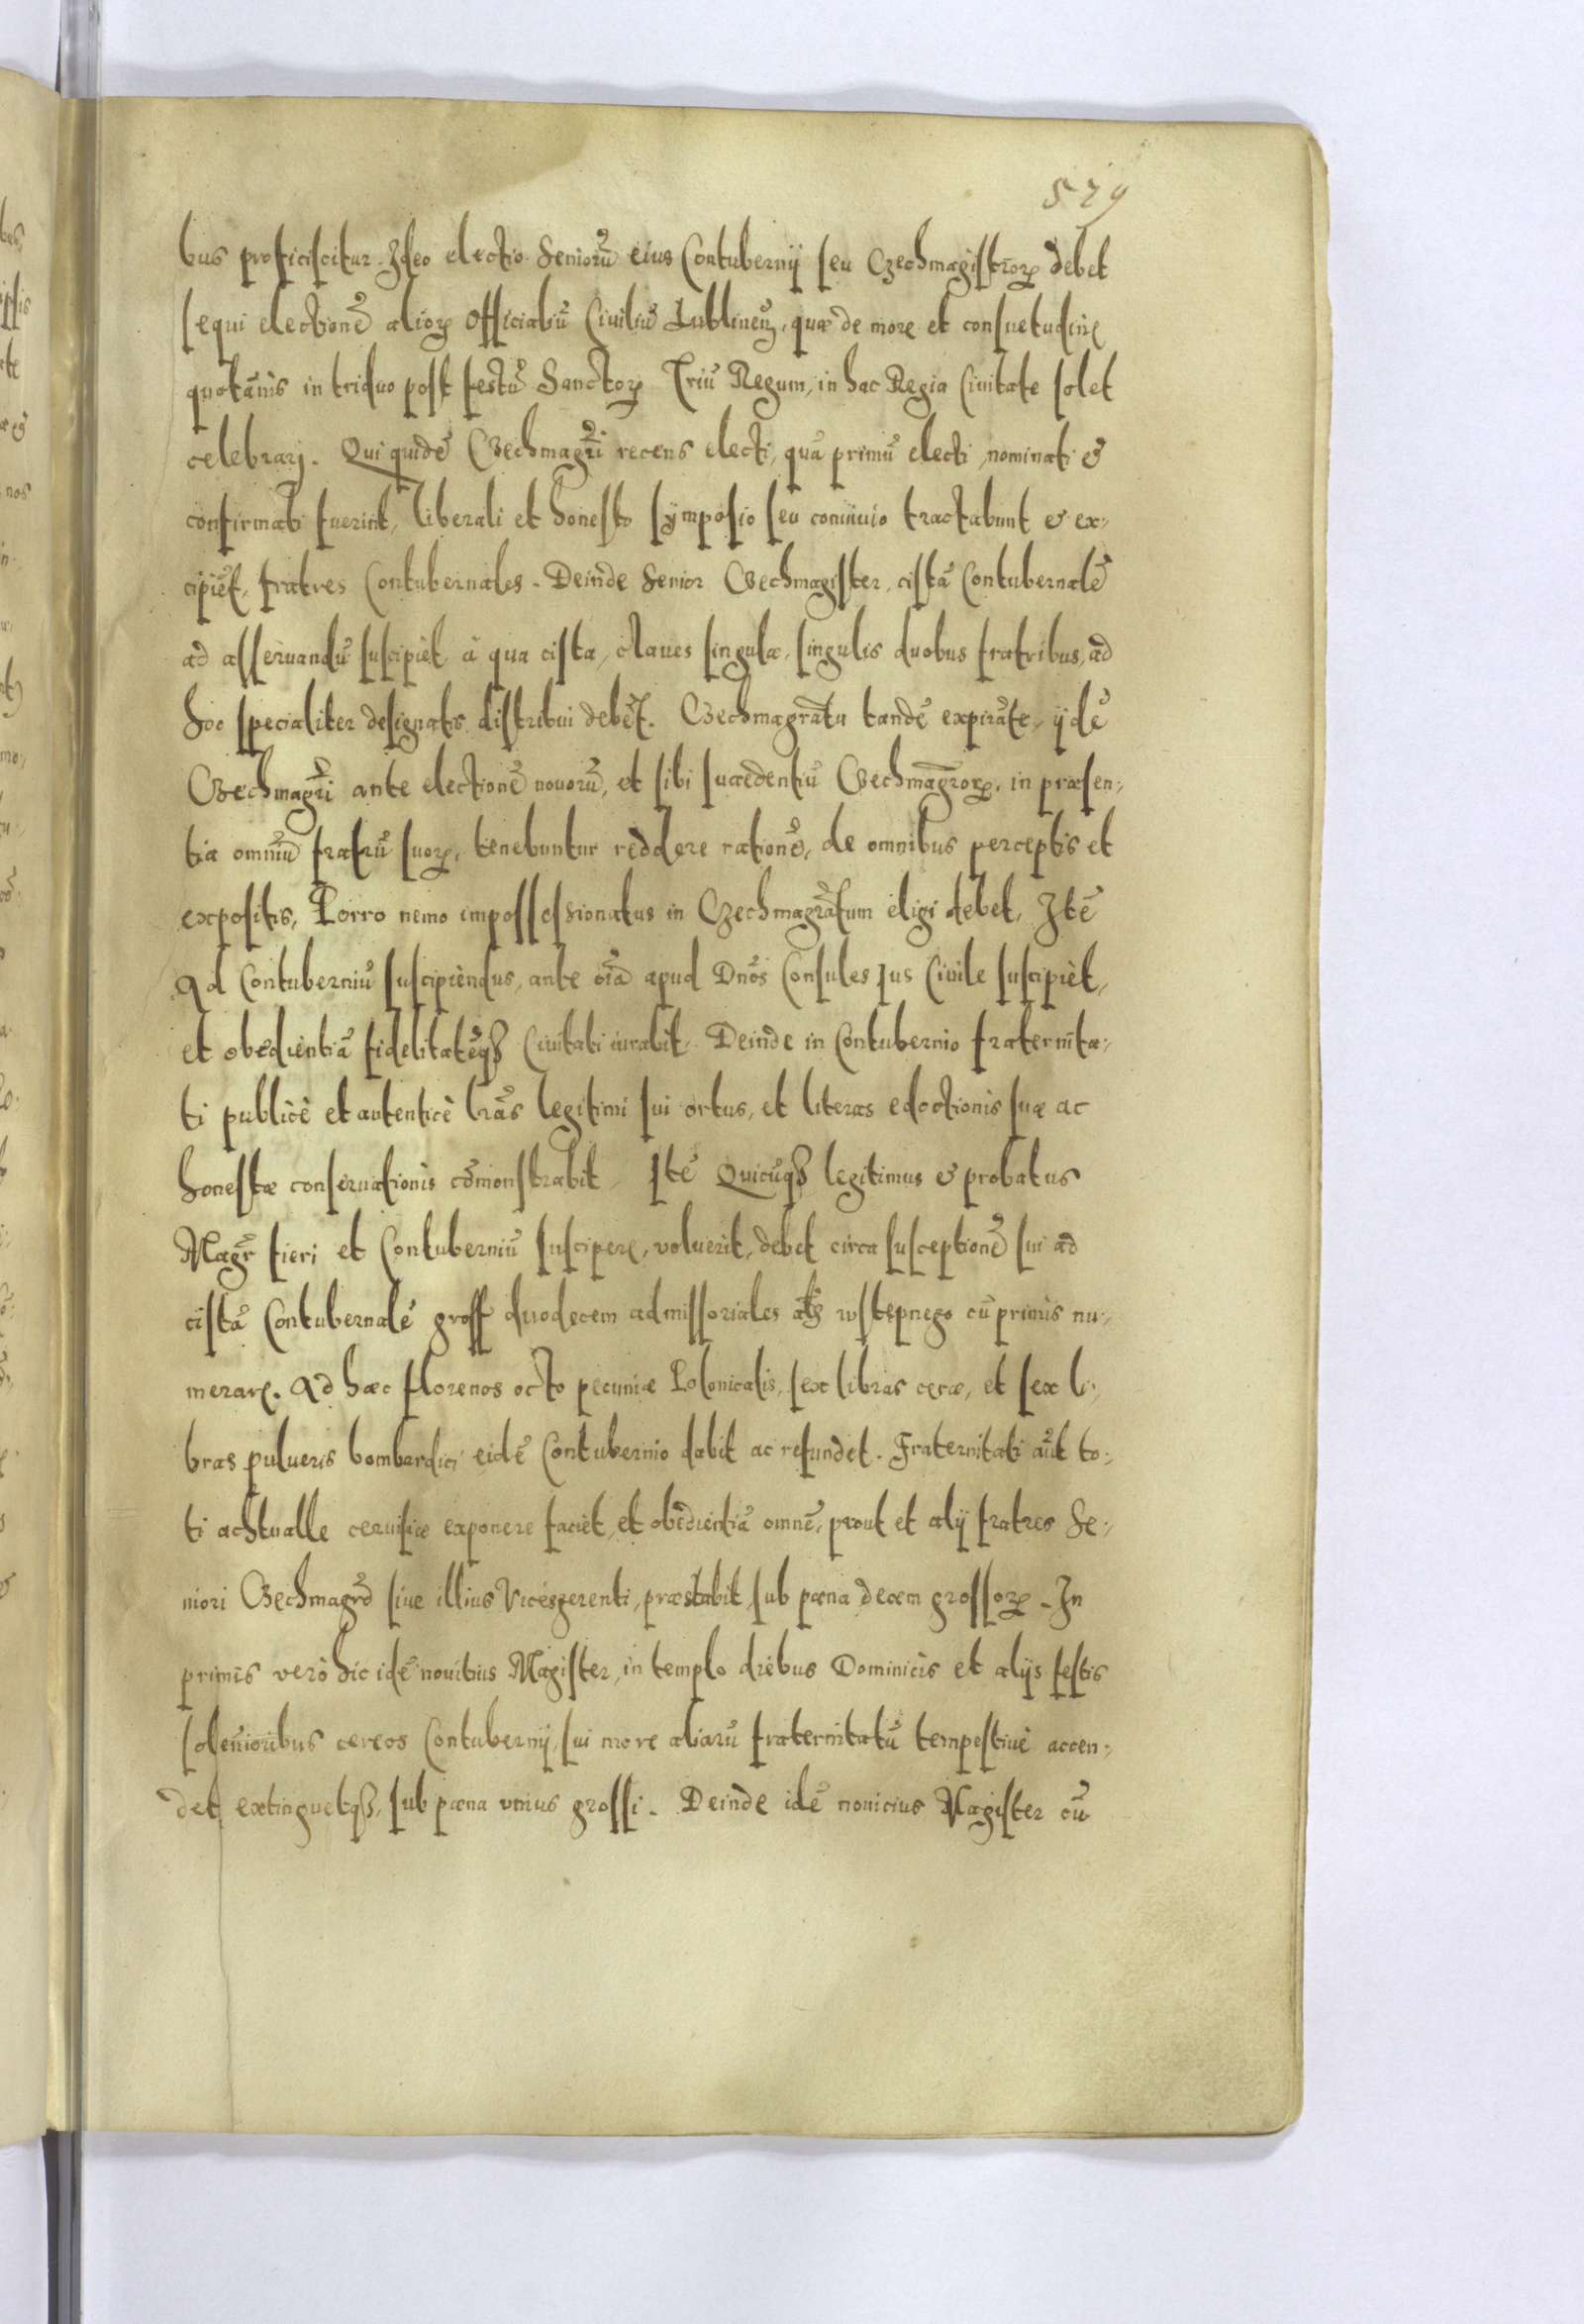 529
bus proficiscitur. Ideo electio Seniorũ eius Contubernij seu Czechmagistrorꝝ debet
sequi electionẽ aliorꝝ Officialiũ Ciuiliũ Lublineñ, quæ de more et consuetudine
quotãnis in triduo post festũ Sanctorꝝ Triũ Regum, in hac Regia Ciuitate solet
celebrarj. Qui quidẽ Czechmagr̃i recens electi, quã primũ electi, nominati &
confirmati fuerint, liberali et honesto symposio seu conuiuio tractabunt & ex-
cipiẽt, fratres Contubernales. Deinde Senior Czechmagister, cistã Contubernalẽ
ad asseruandũ suscipiet, à qua cista, claues singulæ, singulis duobus fratribus, ad
hoc specialiter designatis distribui debẽt. Czechmagrãtu tandẽ expirãte, ijdẽ
Czechmagr̃i ante electionẽ nouorũ, et sibi succedentiũ Czechmagrõrꝝ, in præsen-
tia omniũ fratrũ suorꝝ, tenebuntur reddere rationẽ, de omnibus perceptis et
expositis, Porro nemo impossessionatus in Czechmagrãtum eligi debet, Itẽ
Ad Contuberniũ suscipiendus, ante oĩa apud Dnõs Consules Jus Ciuile suscipiet,
et obedientiã fidelitatẽqꝫ Ciuitati iurabit. Deinde in Contubernio fraternita-
ti publicè et autenticè lrãs legitimi sui ortus, et literas edoctionis suæ ac
honestæ conseruationis cõmonstrabit, Itẽ Quicũqꝫ legitimus & probatus
Magr̃ fieri et Contuberniũ suscipere, voluerit, debet circa susceptionẽ sui ad
cistã Contubernalẽ gross duodecem admissoriales al̃s wstępnego cũ primis nu-
merare. Ad hæc florenos octo pecuniæ Polonicalis, sex libras ceræ, et sex li-
bras pulueris bombardici eidẽ Contubernio dabit ac refundet. Fraternitati aũt to-
ti achtualle ceruisiæ exponere faciet, et obedientiã omnẽ, prout et alij fratres Se-
niori Czechmagrõ siue illius Vicesgerenti, præstabit, sub pæna decem grossorꝝ. In
primis verò hic idẽ nouitius Magister, in templo diebus Dominicis et alijs festis
solẽnioribus cereos Contubernij, sui more aliarũ fraternitatũ tempestiuè accen-
det extinguetqꝫ, sub pæna vnius grossi. Deinde idẽ nouicius Magister cũ